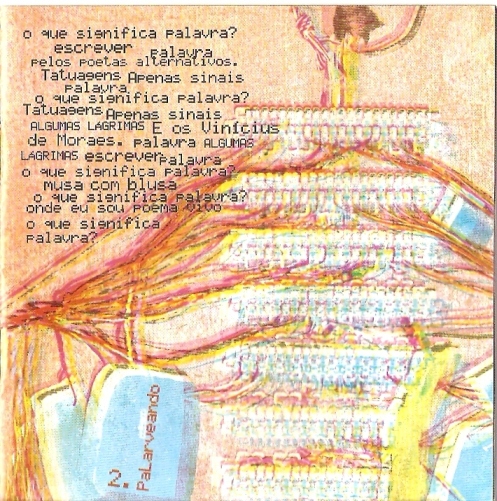 o que significa palavra?
escrever palavra
pelos poetas alternativos.
Tatuagens Apenas sinais
palavra
o que significa palavra?
Tatuagens Apenas sinais
ALGUMAS LÁGRIMAS E os Vinícius
de Moraes. palavra ALGUMAS
LÁGRIMAS escrever palavra
o que significa palavra?
musa com blusa
o que significa palavra?
onde eu sou poema vivo
o que significa
palavra?
2.
PaLarveando